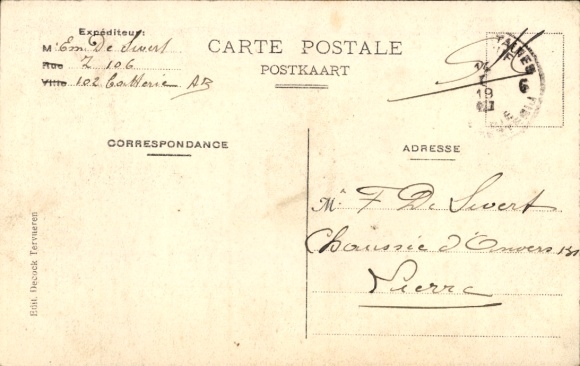 Expéditeur:
M Em. De Sivert
Rue Z 106
Ville 102 Batterie AB
CARTE POSTALE
POSTKAART
CORRESPONDANCE
ADRESSE
Mr F De Sivert
Chaussée d'Anvers
Lierre
Edit. Decock Tervueren